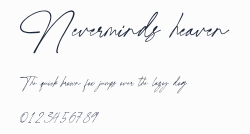 Neverminds heaven
The quick brown fox jumps over the lazy dog
0123456789